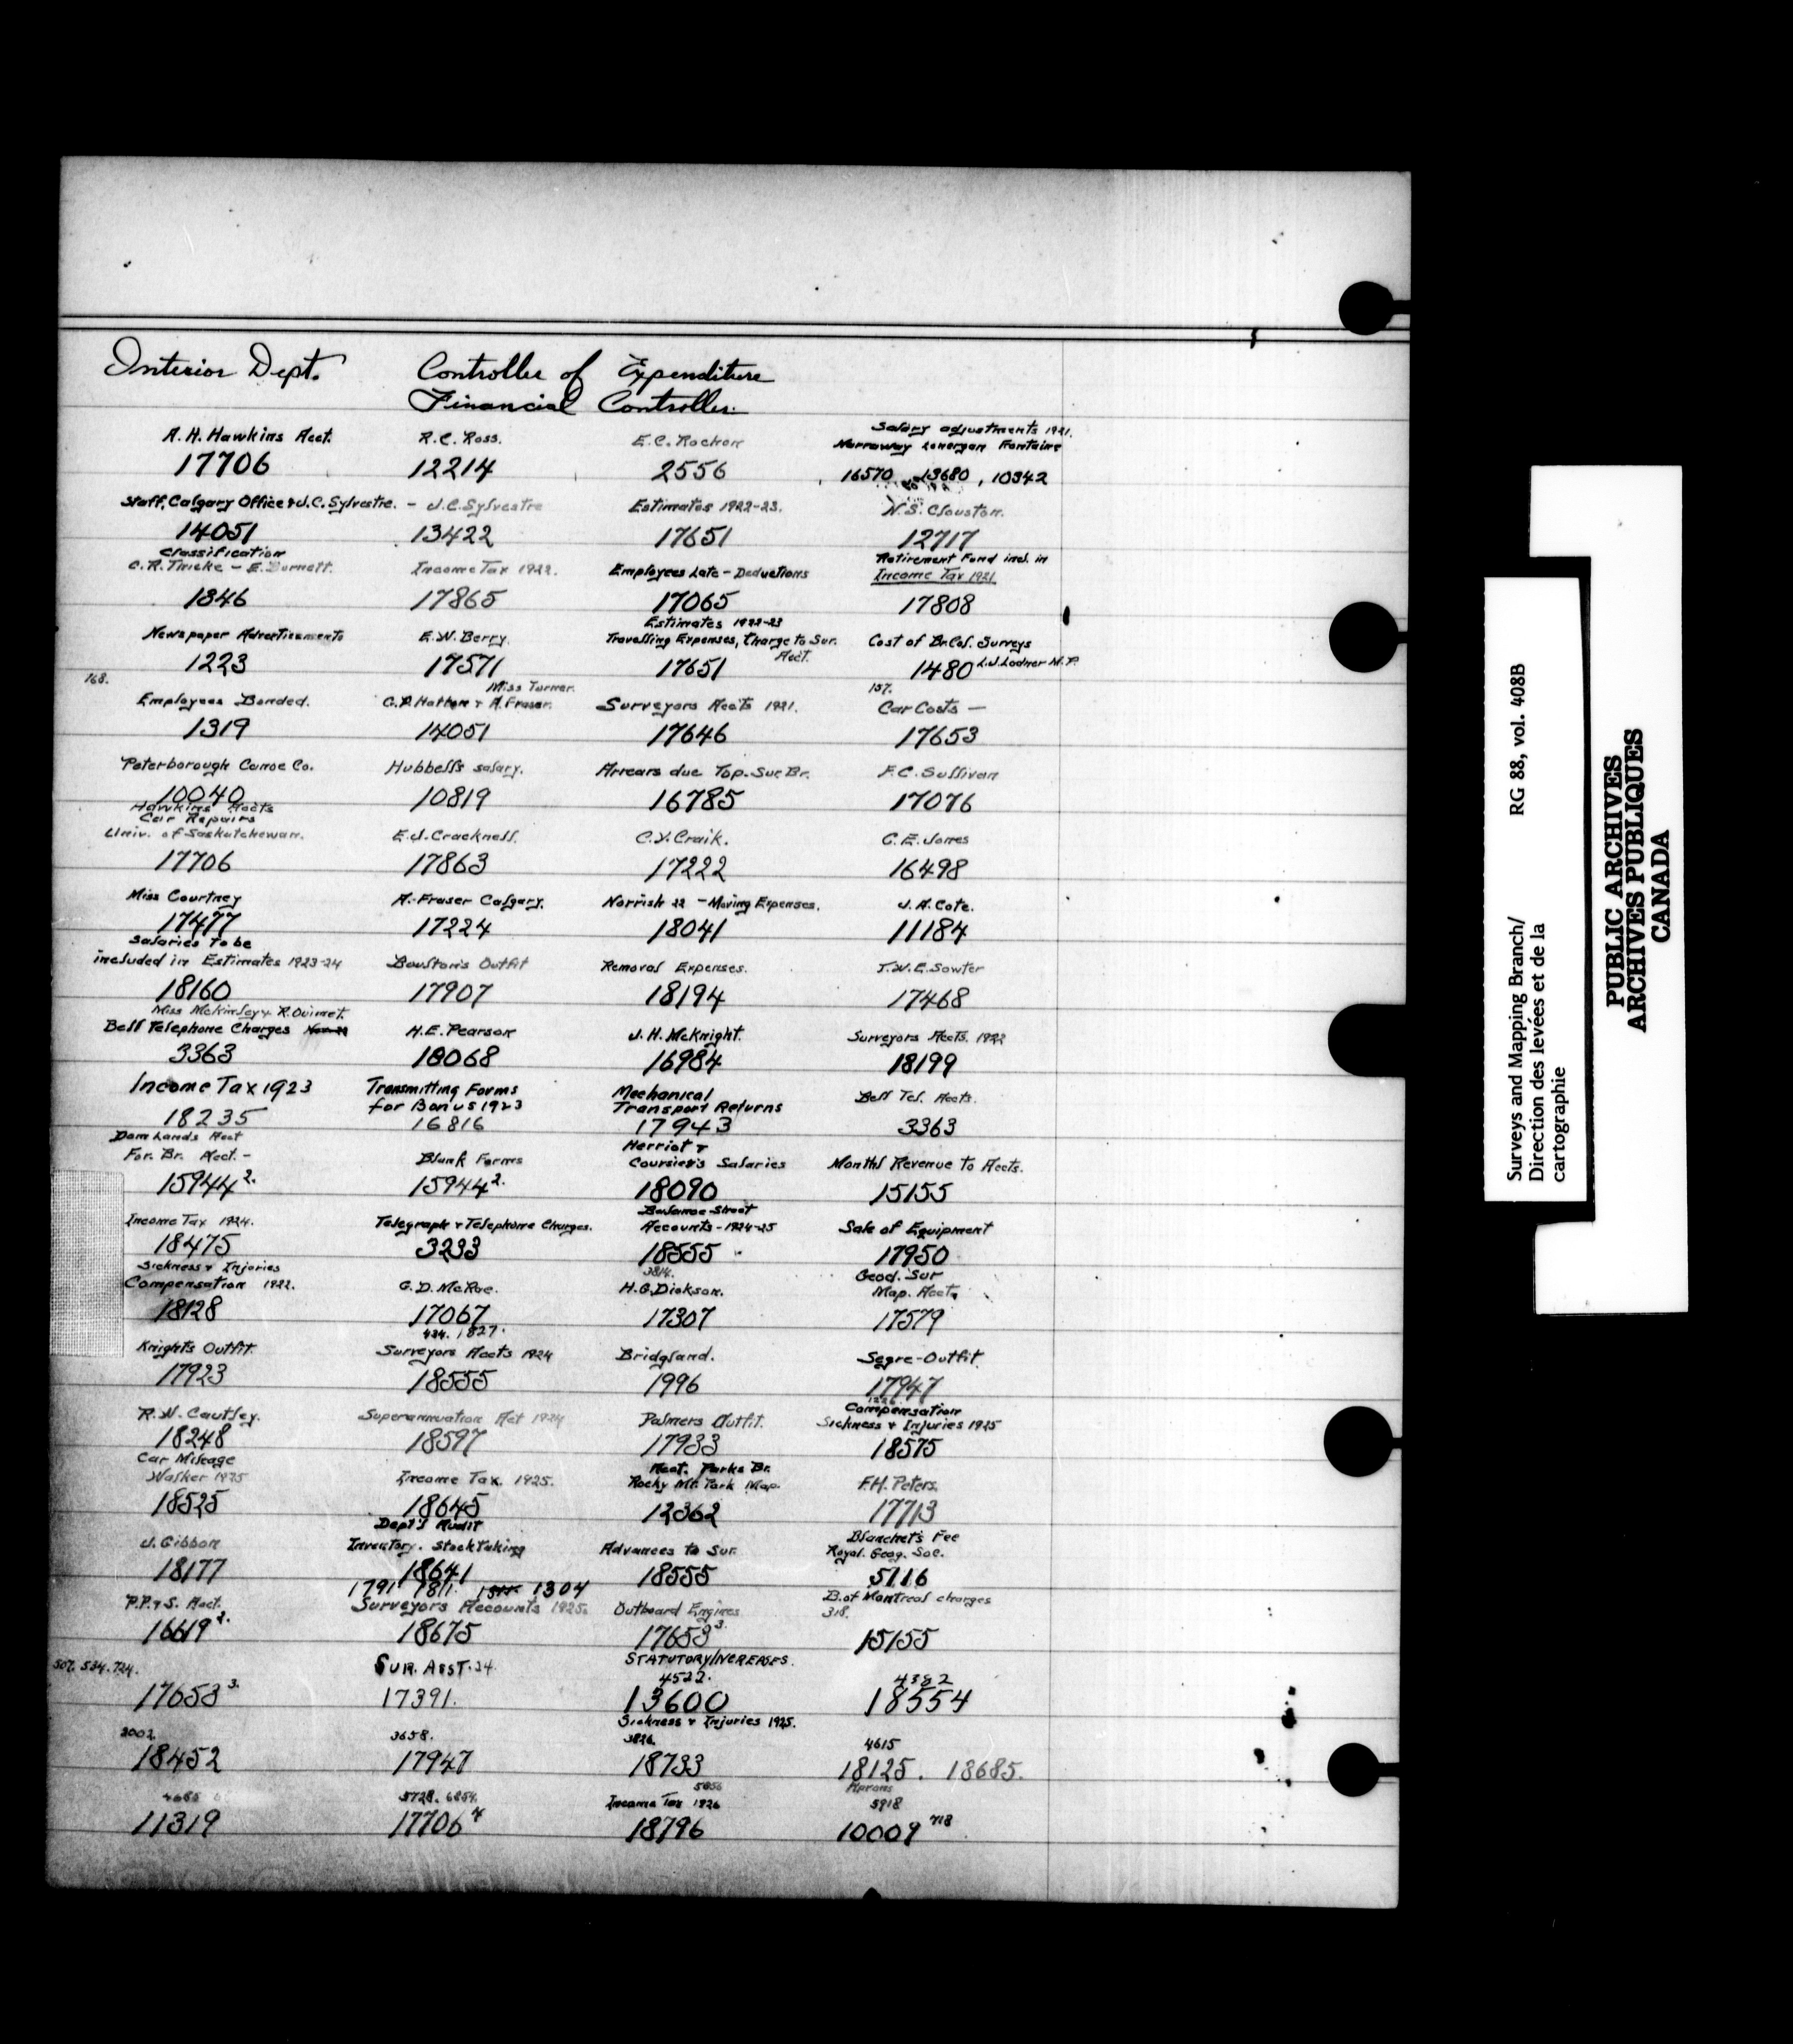 Interior Dept. Controller of Expenditure
Financial Controller.
Salary adjustments 1921.
A. H. Hawkins Acct. R.C. Ross. E.C. Rochon Narraway Lonergan Fontaine
17706 12214 2556 16570, 13680, 10342
Staff, Calgary Office & J.C. Sylvestre. - J.C. Sylvestre Estimates 1922-23. W.S. Clouston.
14051 13422 17651 12717
Classification Retirement Fund incl. in
C.R. Thicke - E. Burnett. Income Tax 1922. Employees Late - Deductions Income Tax 1921
1846 17865 17065 17808
Estimates 1922-23
Newspaper Advertisements E.W. Berry. Travelling Expenses, Charge to Sur. Acct. Cost of Br. Col. Surveys
1223 17571 17651 1480 L.J. Ladner M.P.
168. Miss Turner. 157.
Employees Bonded. C.P. Hotham & A. Fraser. Surveyors Accts 1921. Car Costs —
1319 14051 17646 17653
Peterborough Canoe Co. Hubbell's salary. Arrears due Top. Sur. Br. F.C. Sullivan
10040 10819 16785 17076
Hawkins Accts
Car Repairs
Univ. of Saskatchewan. E.J. Cracknell. C.Y. Craik. C.E. Jones
17706 17863 17222 16498
Miss Courtney A. Fraser Calgary. Norrish 22 - Moving Expenses. J.A. Cote.
17477 17224 18041 11184
Salaries to be
included in Estimates 1923-24 Boulton's Outfit Removal Expenses. T.W.E. Sowter
18160 17907 18194 17468
Miss McKinley & R. Ouimet.
Bell Telephone Charges H.E. Pearson J.H. McKnight. Surveyors Accts. 1922
3363 18068 16984 18199
Income Tax 1923 Transmitting Forms for Bonus 1923 Mechanical Transport Returns Bell Tel. Accts.
18235 16816 17943 3363
Dom Lands Acct Herriot &
For. Br. Acct. - Blank Forms Coursier's Salaries Monthl Revenue to Accts.
15944 2. 15944 2. 18090 15155
Income Tax 1924. Telegraph & Telephone Charges. Accounts - 1924-25 Sale of Equipment
18475 3233 18555 17950
Sickness & Injuries 3814. Geod. Sur
Compensation 1922. G.D. McRae. H.G. Dickson. Map. Acct.
18128 17067 17307 17579
434. 1827.
Knights Outfit Surveyors Accts 1924 Bridgland. Segre-Outfit
17923 18555 1996 17947
Compensation
R.W. Cautley. Superannuation Act 1924 Palmers Outfit. Sickness & Injuries 1925
18248 18597 17933 18575
Car Mileage Acct. Parks Br.
Walker 1925 Income Tax. 1925. Rocky Mt. Park Map. F.H. Peters.
18525 18645 12362 17713
Dept'l Audit Blanchet's Fee
J. Gibbon Inventory. Stocktaking Advances to Sur. Royal. Geog. Soc.
18177 18641 18555 5116
1791 1811. 1304
P.P. & S. Acct. Surveyors Accounts 1925. Outboard Engines B. of Montreal charges
318.
16619 2. 18675 17653 3. 15155
507. 534. 724. SUR. ASST. 24. STATUTORY INCREASES.
4522. 4382
17653 3. 17391. 13600 18554
Sickness & Injuries 1925.
2002 3658. 3826. 4615
18452 17947 18733 18125. 18685.
4685 5728. 6854. 5856 Aprons
Income Tax 1926 5918
11319 17706 4 18796 10009 718
Surveys and Mapping Branch/ RG 88, vol. 408B
Direction des levées et de la
cartographie
PUBLIC ARCHIVES
ARCHIVES PUBLIQUES
CANADA